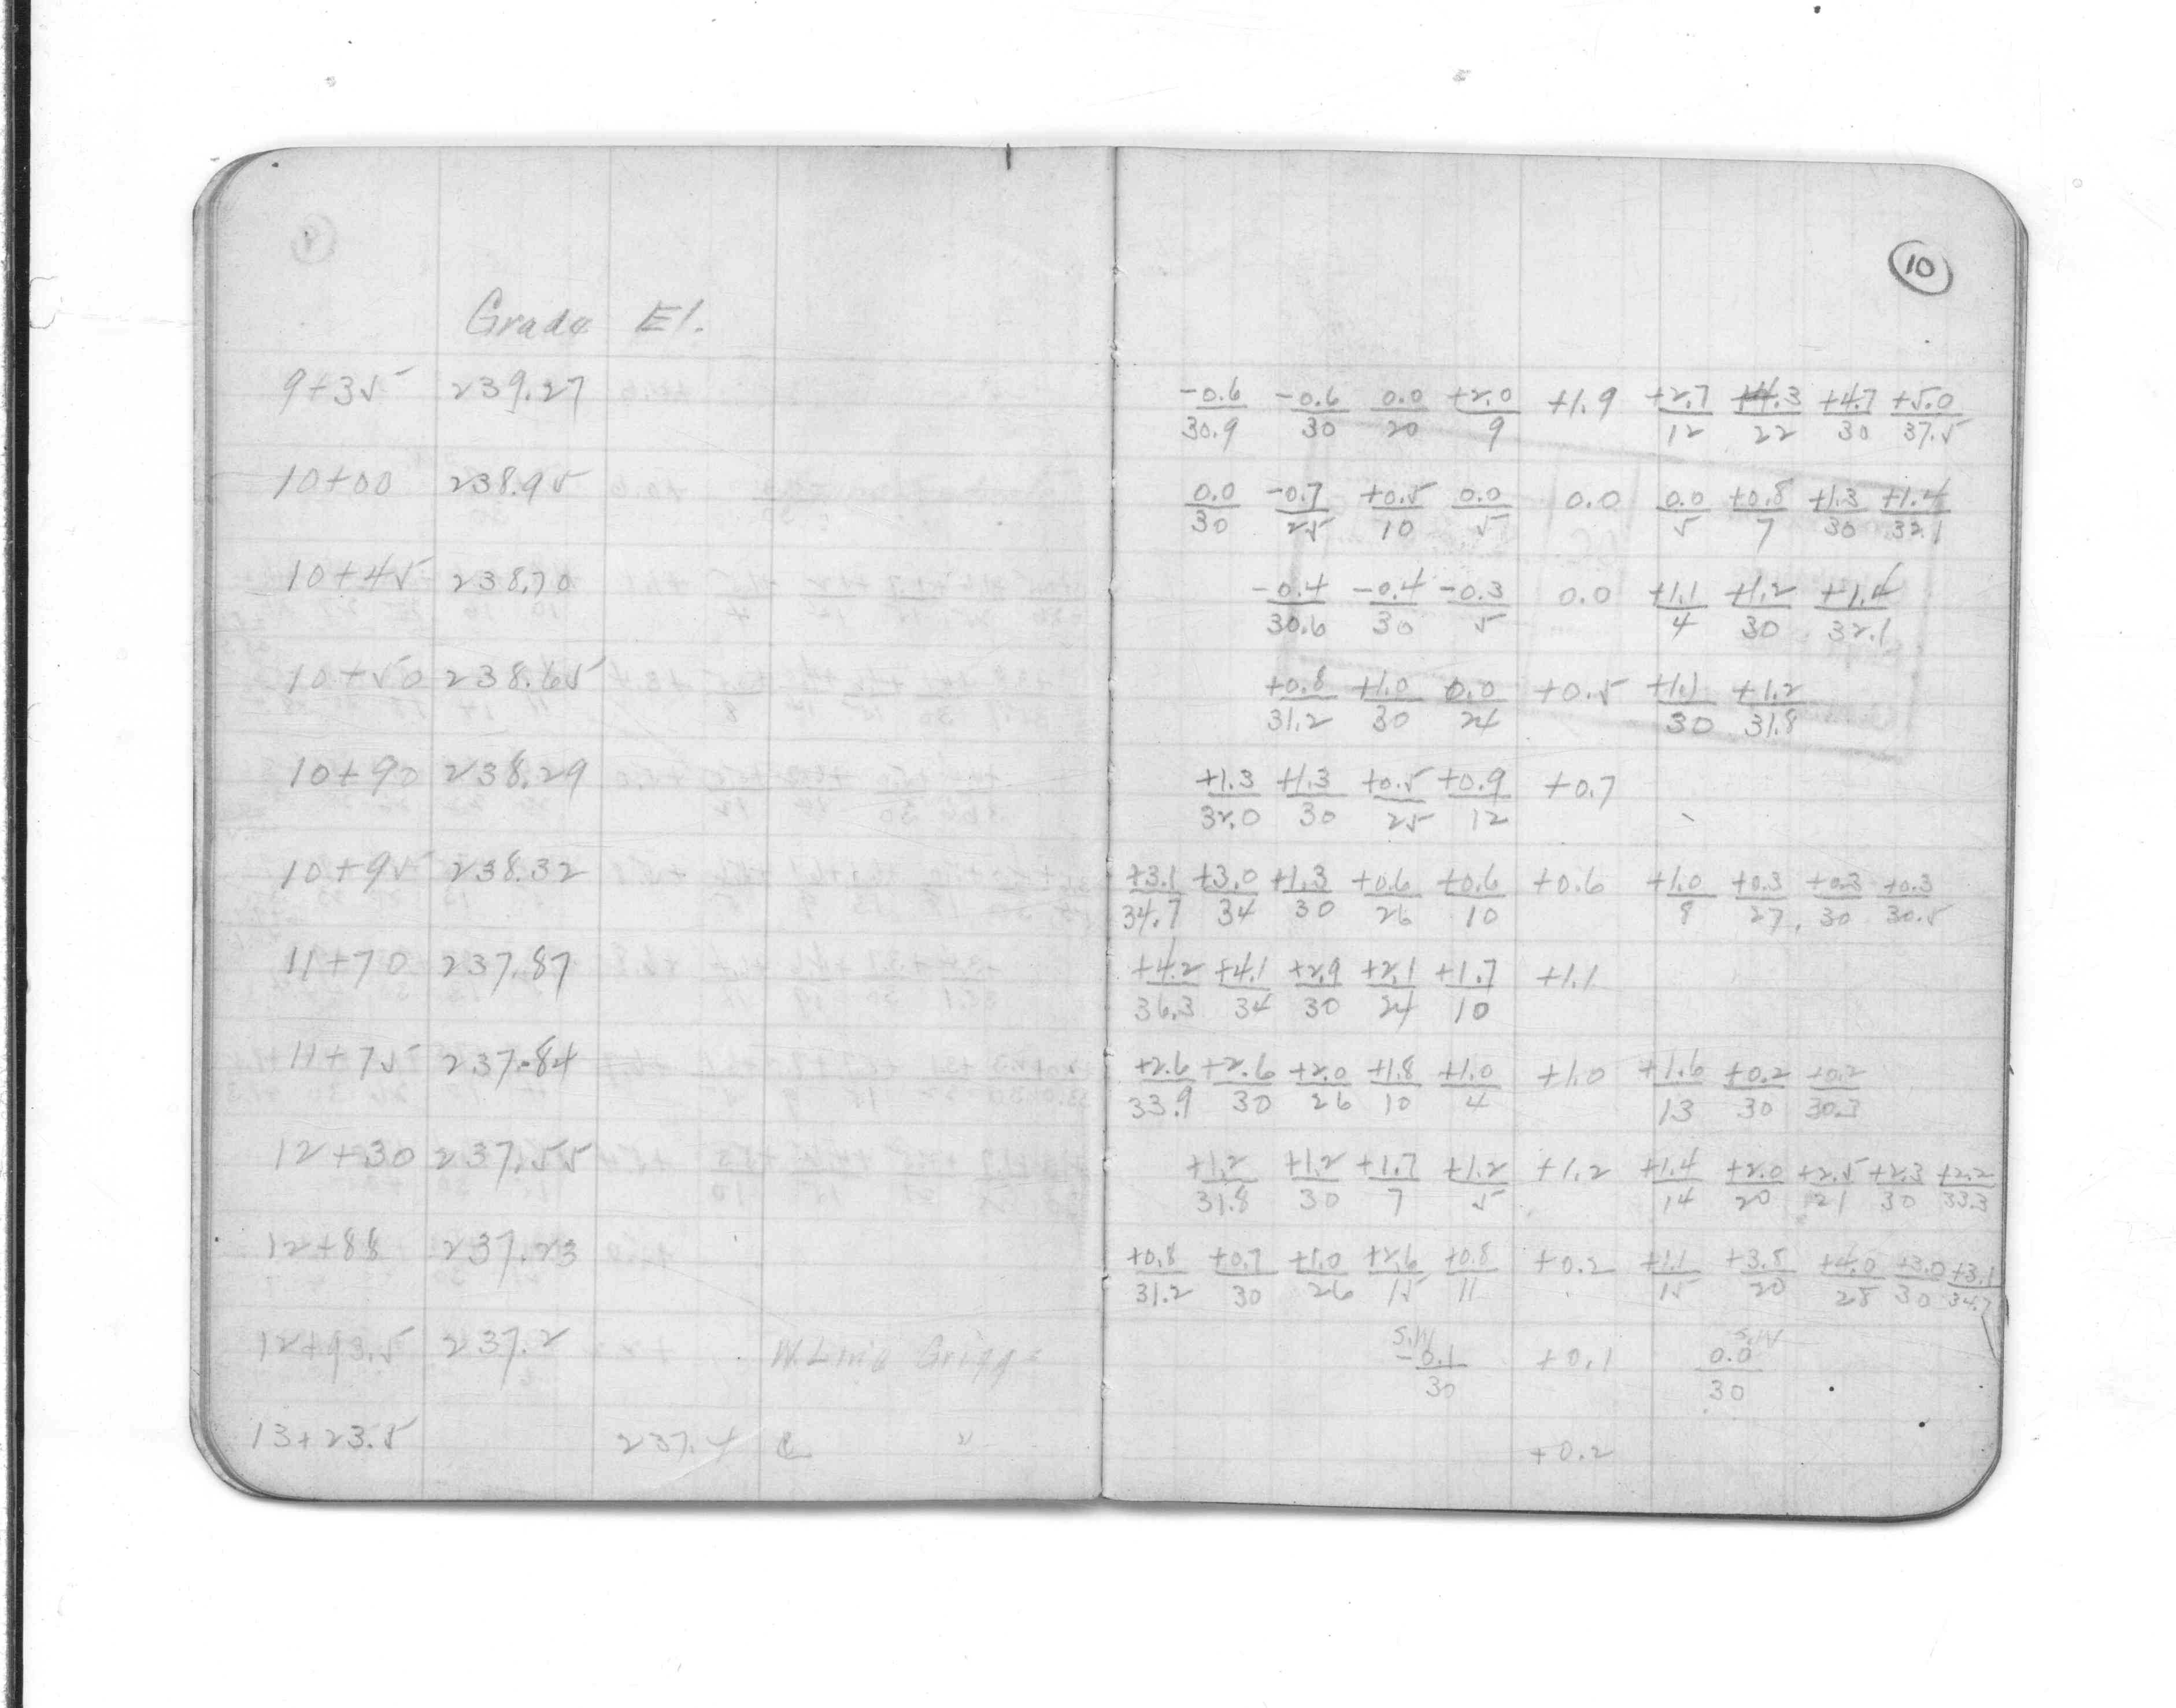 10
Grade El.
9+35 239.27 -0.6/30.9 -0.6/30 0.0/20 +2.0/9 +1.9 +2.7/12 +4.3/22 +4.7/30 +5.0/37.5
10+00 238.95 0.0/30 -0.7/25 +0.5/10 0.0/5 0.0 0.0/5 +0.8/7 +1.3/30 +1.4/32.1
10+45 238.70 -0.4/30.6 -0.4/30 -0.3/5 0.0 +1.1/4 +1.2/30 +1.4/32.1
10+50 238.65 +0.8/31.2 +1.0/30 0.0/24 +0.5 +1.1/30 +1.2/31.8
10+90 238.29 +1.3/32.0 +1.3/30 +0.5/25 +0.9/12 +0.7
10+95 238.32 +3.1/34.7 +3.0/34 +1.3/30 +0.6/26 +0.6/10 +0.6 +1.0/8 +0.3/27 +0.3/30 +0.3/30.5
11+70 237.87 +4.2/36.3 +4.1/34 +2.9/30 +2.1/24 +1.7/10 +1.1
11+75 237.84 +2.6/33.9 +2.6/30 +2.0/26 +1.8/10 +1.0/4 +1.0 +1.6/13 +0.2/30 +0.2/30.3
12+30 237.55 +1.2/31.8 +1.2/30 +1.7/7 +1.2/5 +1.2 +1.4/14 +2.0/20 +2.5/21 +2.3/30 +2.2/33.3
12+88 237.23 +0.8/31.2 +0.7/30 +1.0/26 +2.6/15 +0.8/11 +0.2 +1.1/15 +3.8/20 +4.0/28 +3.0/30 +3.1/34.7
12+93.5 237.2 W. Line Grigg S.W -0.1/30 +0.1 S.W 0.0/30
13+23.5 237.4 ℄ " +0.2